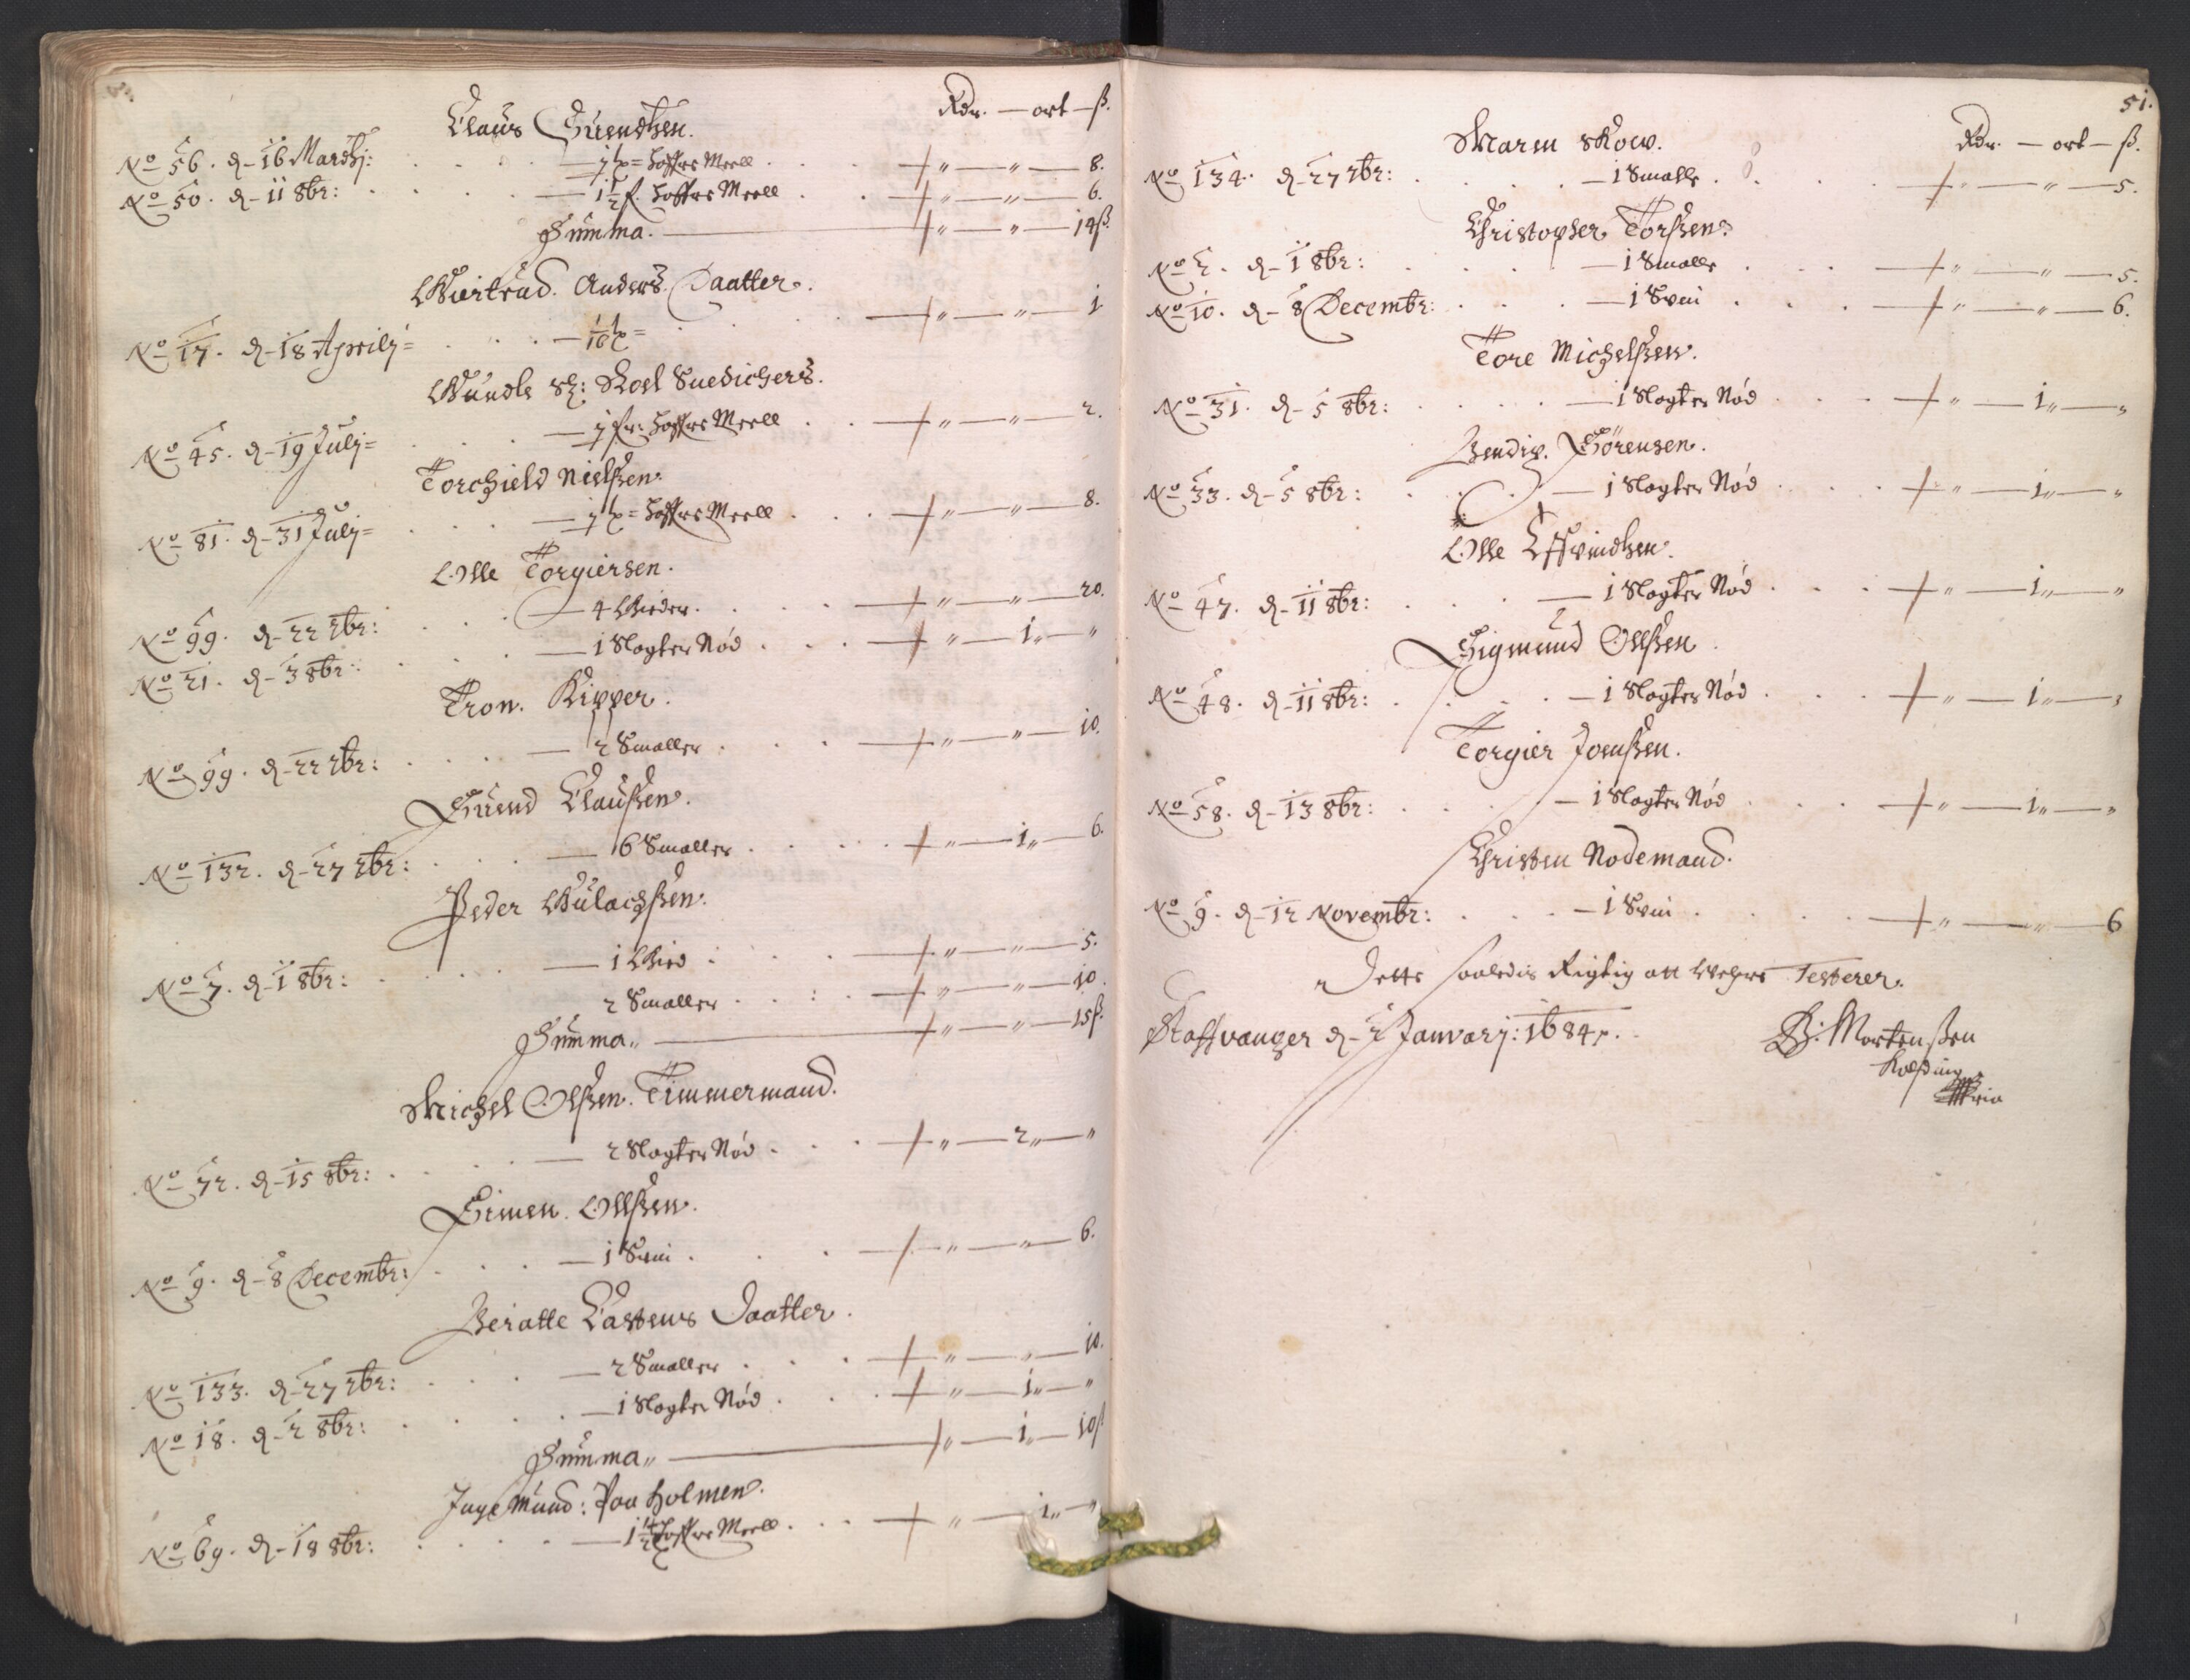 Rdr. — ort — ß.
Claus Suendsen.
No 56. d- 16 Martij: — 1 tø= Haffre Meell 8.
No 50. d- 11 8br: — 1½ f. Haffre Meell 6.
Summa. 14ß
Giertrud Anders Daatter.
No 17. d- 18 Aprilij= — 1/16 tø= 1
Gunele Sl: Roel Snedichers.
No 45. d- 19 Julij= — 1 fr: Haffre Meell 2.
Torchield Nielsen.
No 81. d- 31 Julij= — 1 tø= Haffre Meell 8.
Olle Torgiersen.
No 99. d- 22 7br: — 4 Gieder. 20.
No 21. d- 3 8br: — 1 Slagter Nød 1 „
Tron Kipper.
No 99. d- 22 7br: — 2 Smaller 10.
Suend Claußen.
No 132. d- 27 7br: — 6 Smaller 1 „ 6.
Peder Gulachßen.
No 7. d- 1 8br: — 1 Gied 5.
2 Smaller 10.
Summa „ 15ß.
Michel Olßen Timmermand.
No 72. d- 15 8br: — 2 Slagter Nød 2 „
Simen Ollßen.
No 9. d- 8 Decembr: — 1 Suin 6.
Beratte Castens Daatter.
No 133. d- 27 7br: — 2 Smaller 10.
No 18. d- 2 8br: — 1 Slagter Nød 1 „
Summa „ 1 „ 10ß
Ingemund: Paa Holmen.
No 69. d- 18 8br: — 1½ tø Haffre Meell 1 „
51.
Rdr. — ort — ß.
Maren Skow.
No 134. d- 27 7br: — 1 Smalle 5.
Christopher Torßen.
No 2. d- 1 8br: — 1 Smalle 5.
No 10. d- 8 Decembr: — 1 Suin 6.
Tore Michelßen.
No 31. d- 5 8br: — 1 Slagter Nød 1 „
Bendix Sörensen.
No 33. d- 5 8br: — 1 Slagter Nød 1 „
Olle Effvindsen.
No 47. d- 11 8br: — 1 Slagter Nød 1 „
Sigmund Ollßen.
No 48. d- 11 8br: — 1 Slagter Nød 1 „
Torgier Joenßen.
No 58. d- 13 8br: — 1 Slagter Nød 1 „
Christen Nodemand.
No 9. d- 12 Novembr: — 1 Suin 6
Dette saaledis Rigtig att Wehre Testerer.
Staffvanger d- 2 Januarj: 1684.
B: Mortenßen
Kolding